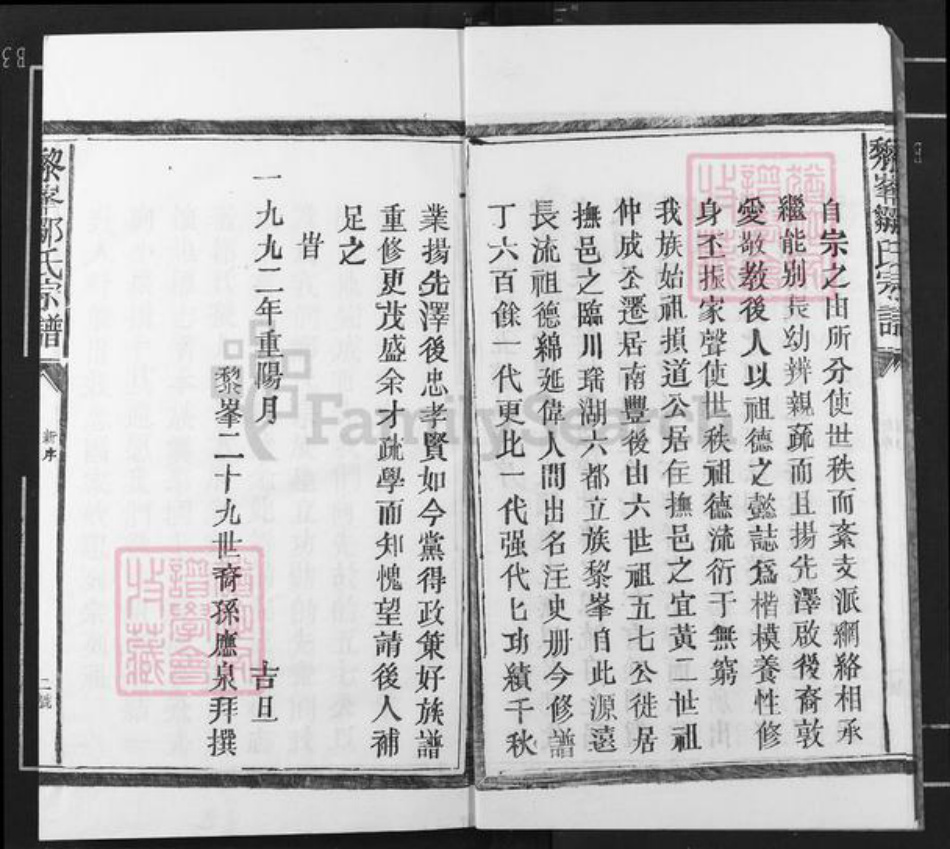 黎峯鄒氏宗譜
自宗之由所分使世秩而紊支派綱絡相承
繼能别長幼辨親疏而且揚先澤啟後裔敦
愛敬教後人以祖德之懿誌為楷模養性修
身丕振家聲使世秩祖德流衍于無窮
我族始祖損道公居在撫邑之宜黃而二世祖
仲成公遷居南豐後由六世祖五七公徙居
撫邑之臨川瑶湖六都立族黎峯自此源遠
長流祖德綿延偉人間出名汪史册今修譜
丁六百餘一代更比一代强代匕功績千秋
業揚先澤後忠孝賢如今黨得政策好族譜
重修更茂盛余才疏學而知愧望請後人補
足之
旹
一九九二年重陽月 吉旦
黎峯二十九世裔孫應泉拜撰
黎峯鄒氏宗譜
新序
二號
譜學會
收藏
譜學會
收藏
FamilySearch